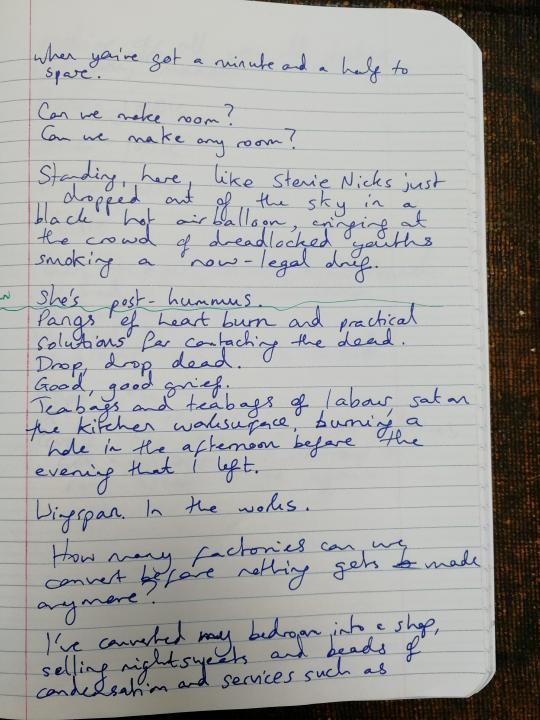 when you've got a minute and a half to
spare.
Can we make room?
Can we make any room?
Standing, here, like Stevie Nicks just
dropped out of the sky in a
black hot air balloon, cringing at
the crowd of dreadlocked youths
smoking a now-legal drug.
She's post-hummus.
Pangs of heart burn and practical
solutions for contacting the dead.
Drop, drop dead.
Good, good grief.
Teabags and teabags of labour, sat on
the kitchen worksurface, burning a
hole in the afternoon before the
evening that I left.
Wingspan. In the works.
How many factories can we
convert before nothing gets made
anymore?
I've converted my bedroom into a shop,
selling nightsweats and beads of
condensation and services such as